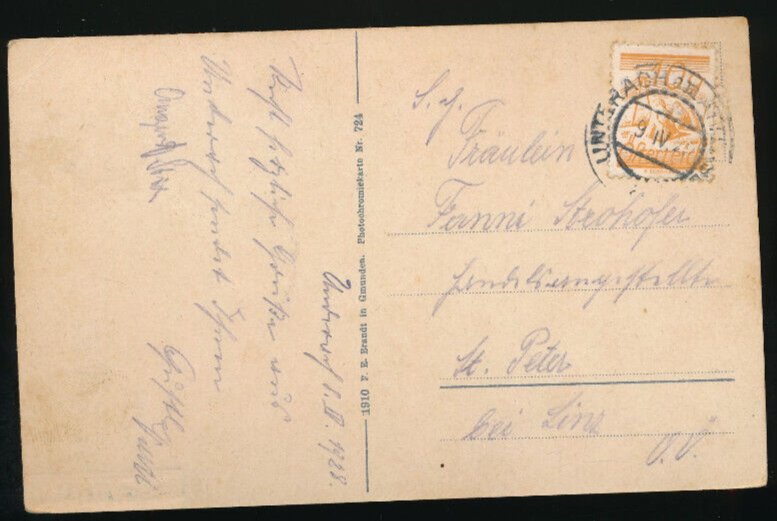 Unterach 8. IV. 1928.
Recht herzliche Grüße aus
Unterach sendet Ihnen
1910 F. E. Brandt in Gmunden. Photochromiekarte Nr. 724
UNTERACH
9 IV 2
S. g.
Fräulein
Fanni Strohofer
Handelsangestellte
St. Peter
bei Linz
O. Ö.